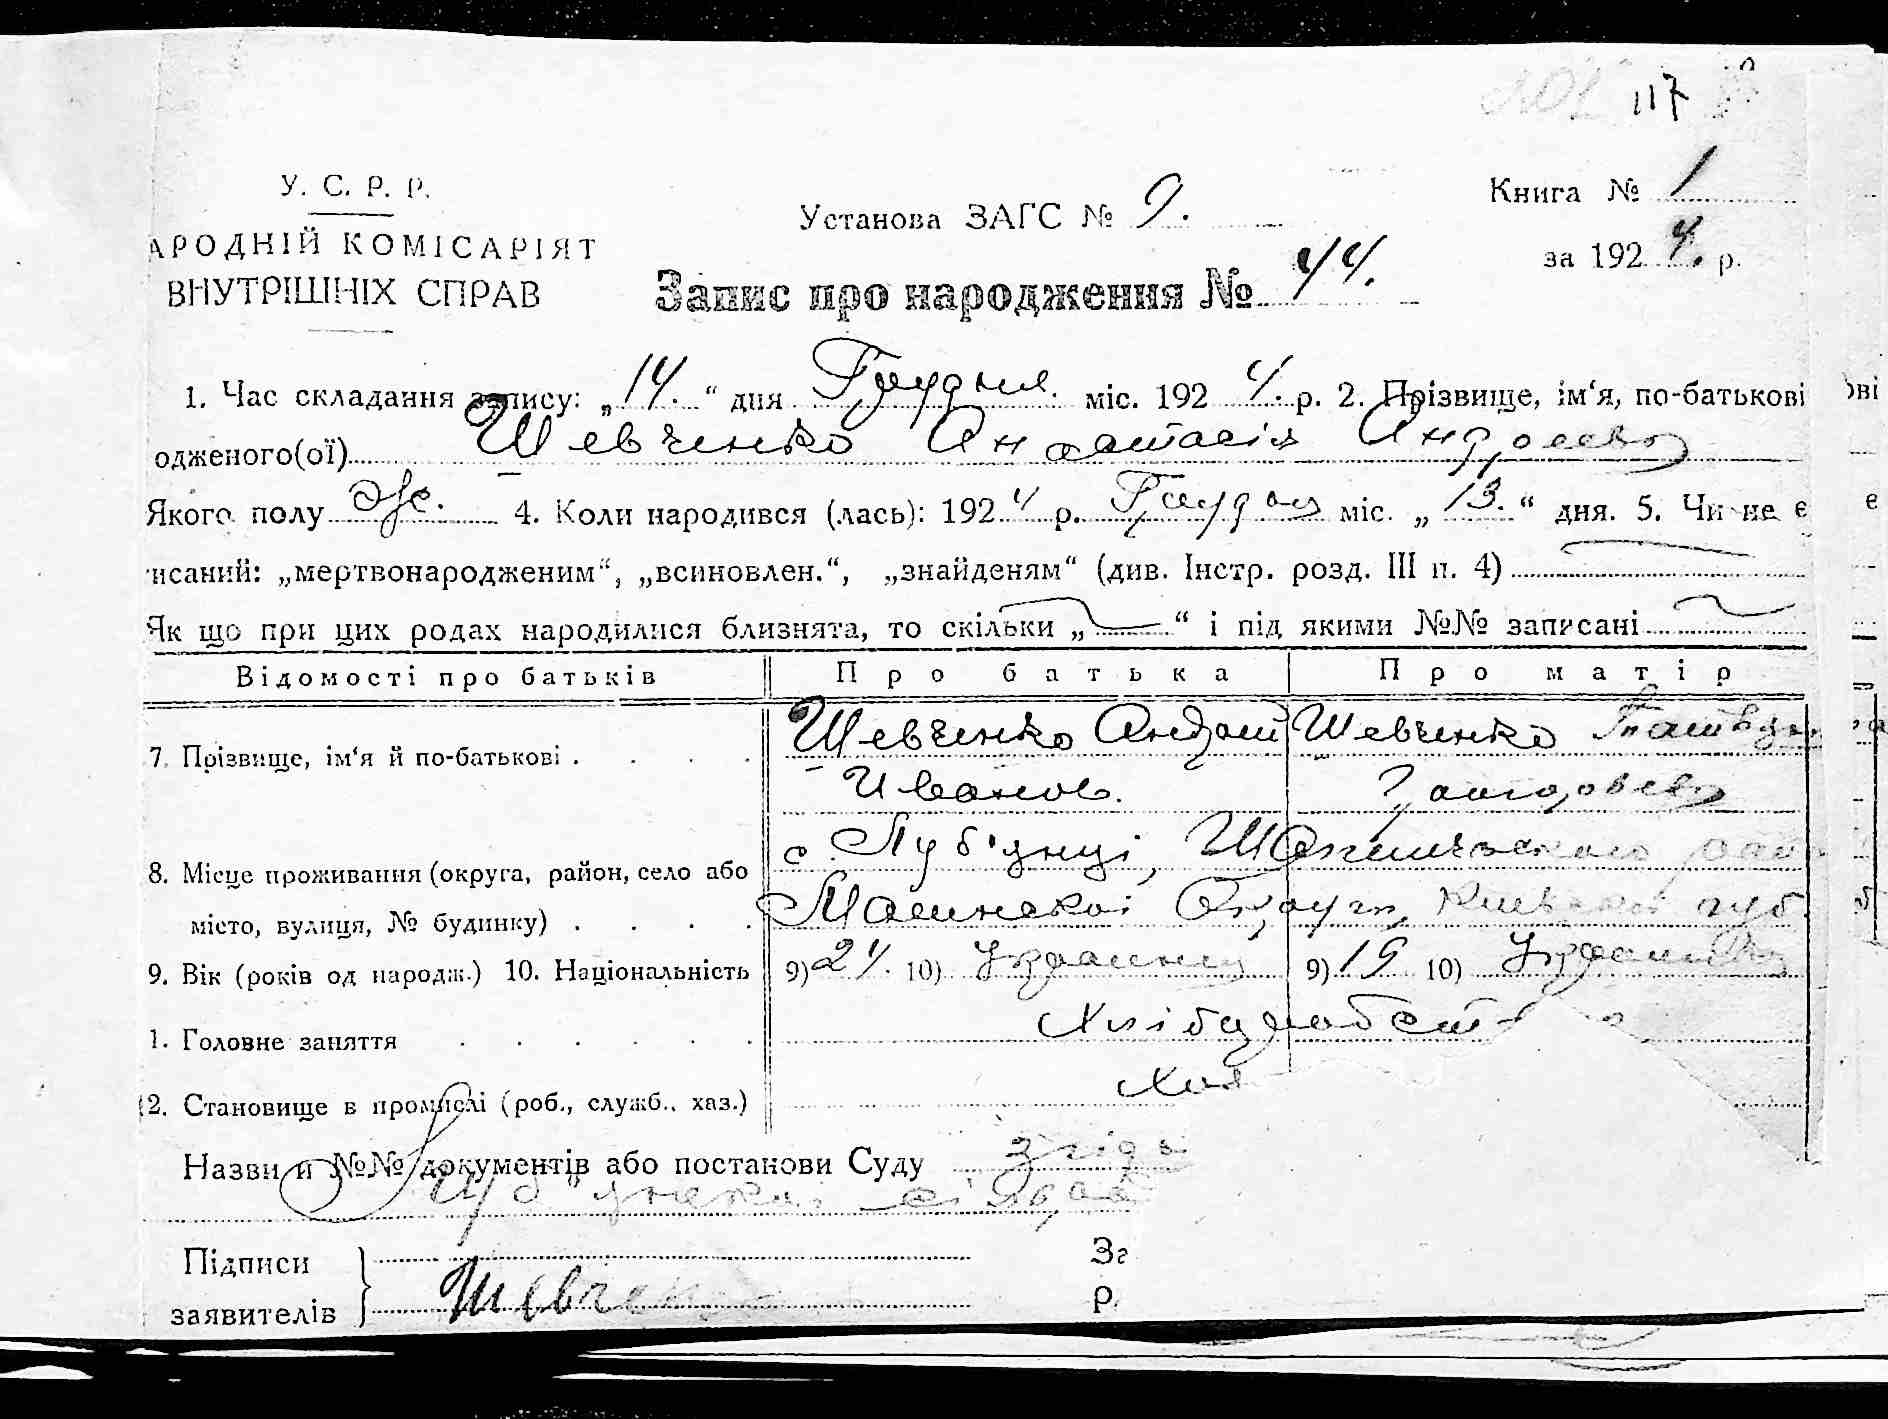 117
У. С. Р. Р.
Книга № 1
Установа ЗАГС № 9.
АРОДНІЙ КОМІСАРІЯТ
за 1924. р.
ВНУТРІШНІХ СПРАВ
Запис про народження № 44.
1. Час складання запису: „14.“ дня Грудня міс. 1924. р. 2. Прізвище, ім‘я, по-батькові
одженого(ої) Шевченко Анастасія Андреева
Якого полу Ж. 4. Коли народився (лась): 1924 р. Грудня міс. „13.“ дня. 5. Чи не є
исаний: „мертвонародженим“, „всиновлен.“, „знайденям“ (див. Інстр. розд. III п. 4)
Як що при цих родах народилися близнята, то скільки „—“ і під якими №№ записані
Відомості про батьків Про батька Про матір
7. Прізвище, ім‘я й по-батькові . . . . Шевченко Андрей Шевченко
Иванов.
с. Луб'янці,
8. Місце проживання (округа, район, село або
місто, вулиця, № будинку) . . . . Округи, Київської губ.
9. Вік (років од народж.) 10. Національність 9) 24. 10) Украинец 9) 19 10) Украинка
1. Головне заняття . . . . . . Хлібороб
2. Становище в промислі (роб., служб., хаз.)
Назви и №№ документів або постанови Суду
Підписи
Зг
заявителів Шевченко
р.